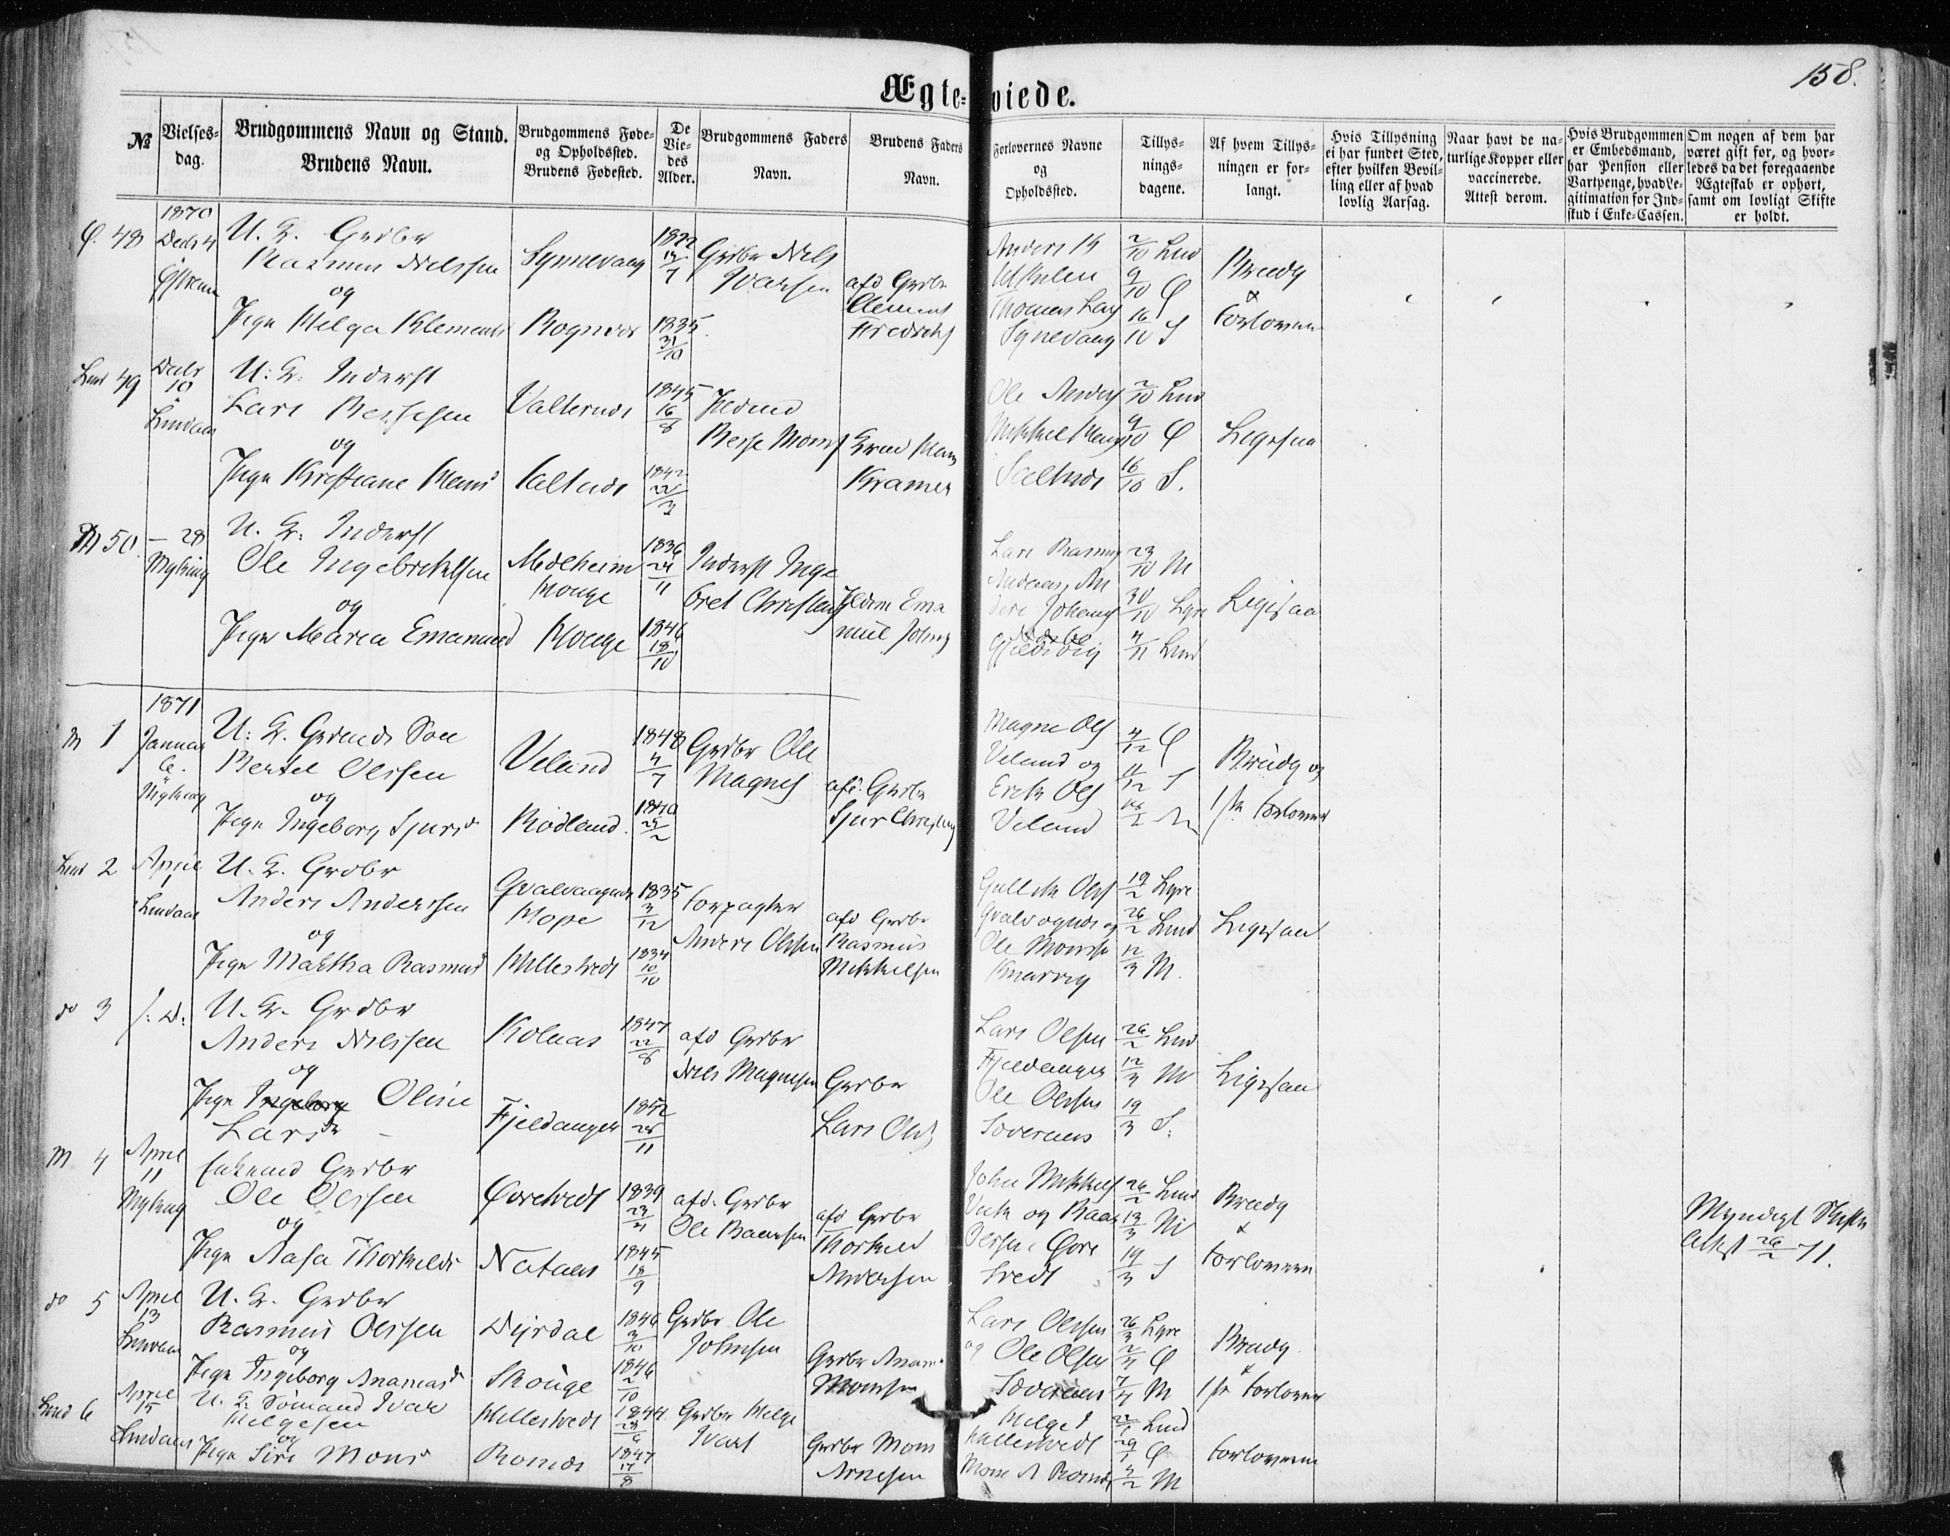 158.
Ægteviede.
№
Vielses-
dag.
Brudgommens Navn og Stand.
Brudens Navn.
Brudgommens Føde-
og Opholdssted.
Brudens Fødested.
De
Vie-
des
Alder.
Brudgommens Faders
Navn.
Brudens Faders
Navn.
Forlovernes Navne
og
Opholdssted.
Tillys-
nings-
dagene.
Af hvem Tillys-
ningen er for-
langt.
Hvis Tillysning
ei har fundet Sted,
efter hvilken Bevil-
ling eller af hvad
lovlig Aarsag.
Naar havt de na-
turlige Kopper eller
vaccinerede.
Attest derom.
Hvis Brudgommen
er Embedsmand,
har Pension eller
Vartpenge, hvad Le-
gitimation for Ind-
skud i Enke-Cassen.
Om nogen af dem har
været gift før, og hvor-
ledes da det foregaaende
Ægteskab er ophørt,
samt om lovligt Skifte
er holdt.
48
1870
Decbr 4
U. K. Grdbr
Rasmus Nielsen
og
Pige Helga Klements
Synnevaag
Rognvor
1835
31/10
Grdbr Niels
Ivarsen
afd Grdbr
Clement
Fredriks
2/10 Lind
9/10 Ø
16/10 S
Brudg
&
Forloveren
Lind 49
Decbr
10
Lindaas
U: K: Inderst
Lars Bessesen
og
Pige Kristiane Mons
1845
16/8
1842
22/3
Besse Mons
Kramer
Ole Anders
2/10 Lind
9/10 Ø
16/10 S.
Ligesaa
M 50.
– 28
Myking
U. K: Inderst
Ole Ingebrektsen
og
Pige Maria Emanuels
Midtheim
Kouge
1836
24/11
1846
18/10
Inderst Inge
bret Christens
Lars Rasmus
23/10 M
30/10 Lyre
4/11 Lind
Ligesaa
1871
M 1
Januar
6.
Myking
U: K. Grdmds Søn
Bertel Olssen
og
Pige Ingeborg Sjursd
Veland
Rødland.
1848
4/7
Grdbr Ole
Magnes
afd. Grdbr
Sjur Christens
Magne Ols
Veland og
Erik Ols
Veland
4/12 Ø
11/12 S
Brudg og
1ste Forlover
Lind 2
April
1
Lindaas
U. K. Grdbr
Anders Anderssen
og
Pige Martha Rasmusd
Hope
Hellestvedt
1835
3/12
1834
10/10
Forpagter
Anders Olssen
afd Grdbr
Rasmus
Mikkelsen
Gullik Ols
Ole Monsse
Knarvig
19/2 Lyre
26/2 Lind
12/3 M.
Ligesaa
do 3
s: D:
U. K. Grdbr
Anders Nielssen
og
Pige Ingeborg Oline
Larsdr
Kolaas
Fjeldanger
1847
22/8
1852
28/11
afd Grdbr
Niels Magnesen
Grdbr
Lars Ols
Lars Olsen
Fjeldanger
Ole Olssen
Soveraas
26/2 Lind
12/3 M
19/3 S.
Ligesaa
M 4
April
11
Myking
Enkemd Grdbr
Ole Olssen
og
Pige Aasa Thorkelds
Øvretvedt
Nataas
1839
1845
18/9
afd. Grdbr
Ole Baardsen
afd Grdbr
Thorkeld
Andersen
John Mikkels
26/2 Lind
12/3 M
19/3 S
Brudg
&
Forloveren
Myndigt Skifte
Attest 26/2 71.
do 5
April
13
U. K. Grdbr
Rasmus Olssen
og
Pige Ingeborg Ananiasd
Dyrdal
Skouge
1846
3/10
1846
2/10
Grdbr Ole
Johnsen
Grdbr Anan
Monssen
Lars Olssen
og Ole Olsen
Soveraas
26/3 Lyre
2/4 Ø
7/4 M
Brudg.
&
1ste Forlover
Lind 6
April
15
Lindaas
U. K. Sømand Ivar
Helgesen
og
Pige Siri Mons
Hellestvedt
1844
1847
17/8
Grdbr Helge
Ivars
Grdbr Mons
Arnesen
Helge I
Hellestvedt
Lind
Ø
M
Forloveren